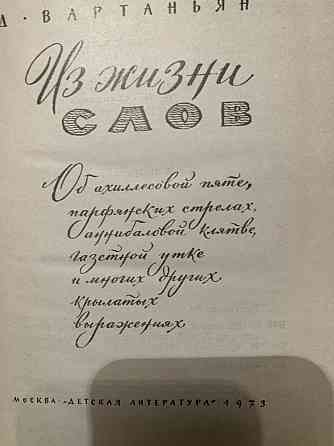 Д · ВАРТАНЬЯН
Из жизни
СЛОВ
Об ахиллесовой пяте,
парфянских стрелах,
аннибаловой клятве,
газетной утке
и многих других
крылатых
выражениях
МОСКВА «ДЕТСКАЯ ЛИТЕРАТУРА» 1973